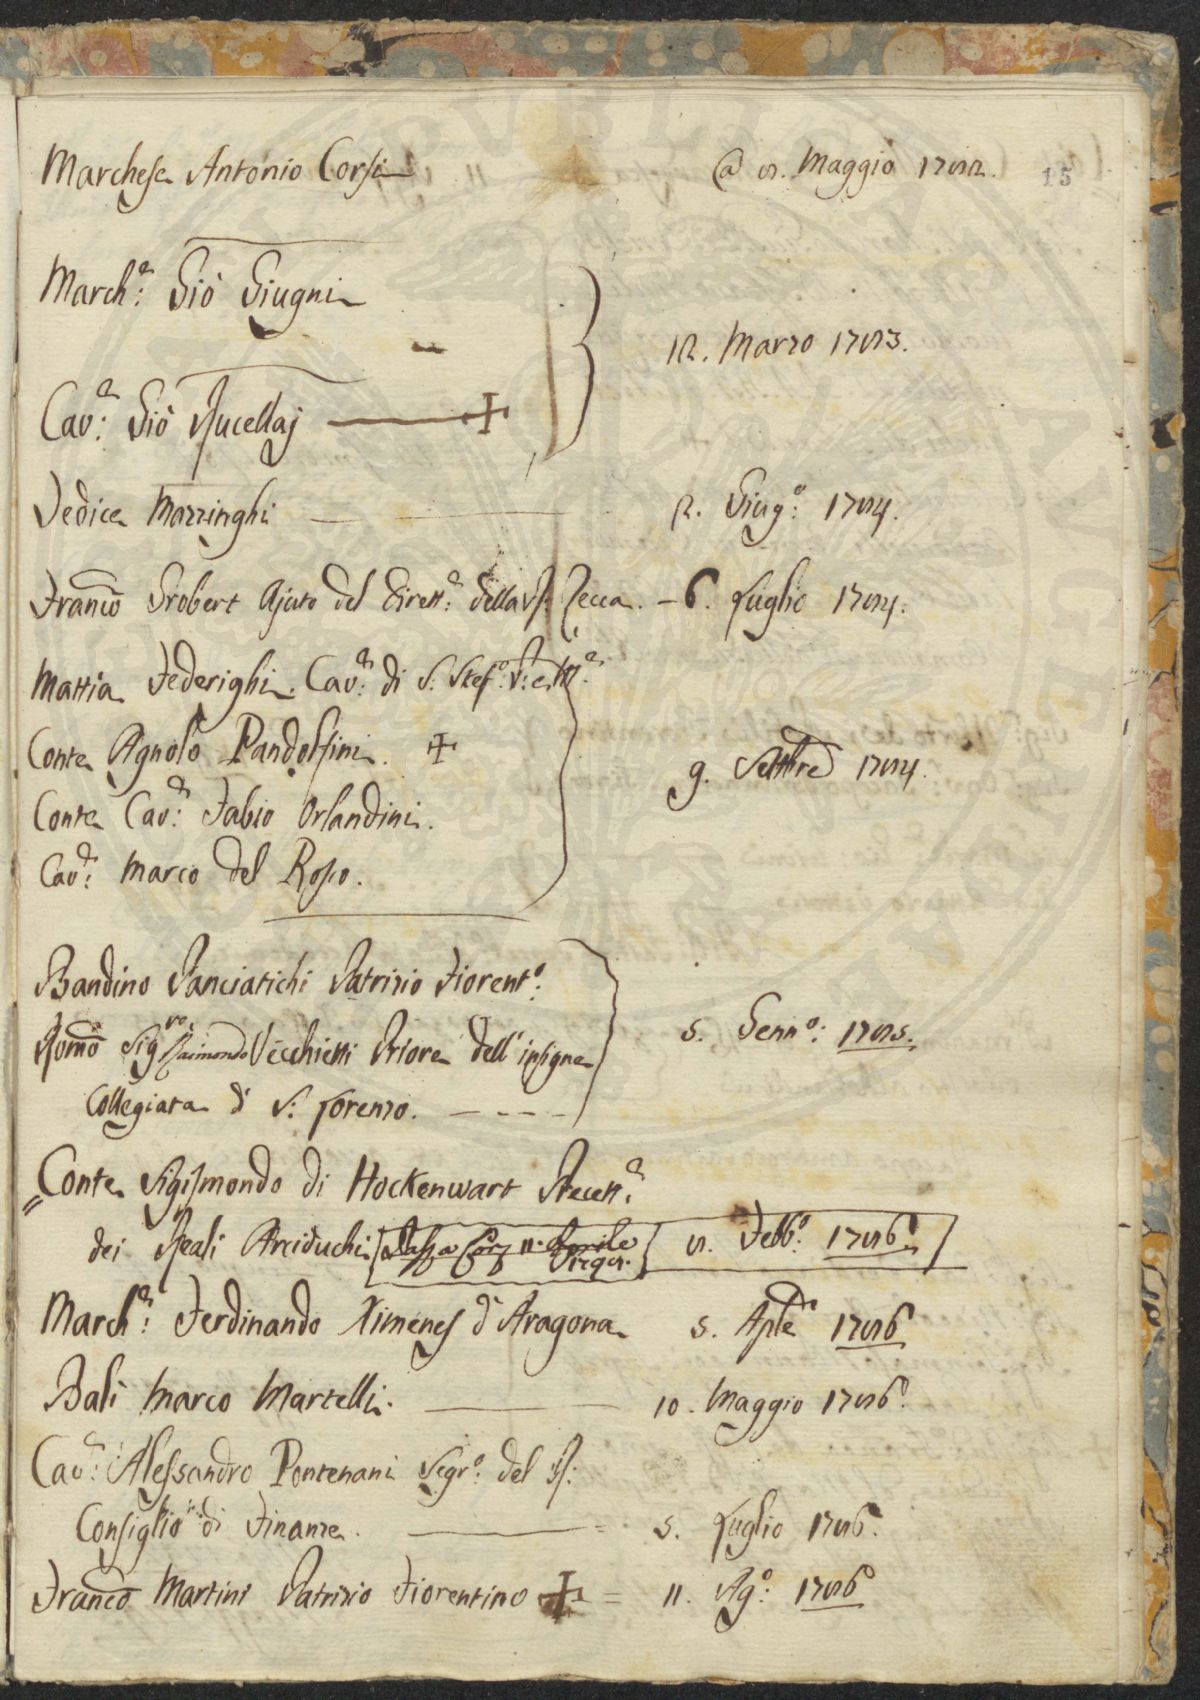 Marchese Antonio Corsi @ 8. Maggio 1782.
15
March.e: Gio Giugni
12. Marzo 1783.
Cav.e: Gio Rucellaj
Fedice Mazzinghi 2. Giug.o: 1784.
Franco Grobert Ajuto del Dirett.e: della R. Zecca. 6. Luglio 1784.
Mattia Federighi Cav.e: di S. Stef.o
Conte Agnolo Pandolfini.
9. Settbre 1784.
Conte Cav.e: Fabio Orlandini.
Cav.e: Marco del Rosso.
Bandino Panciatichi Patrizio Fiorent.o:
Romo Sig.re Raimondo Vecchietti Priore dell'insigne
5. Genn.o: 1785.
Collegiata di S: Lorenzo.
Conte Sigismondo di Hockenwart Precett.e:
dei Reali Arciduchi 8. Febb.o: 1786.
March.e: Ferdinando Ximenes d'Aragona 5. Aple 1786
Balì Marco Martelli. 10. Maggio 1786.
Cav.e: Alessandro Pontenani Segr.o: del R:
Consiglio di Finanze. 5. Luglio 1786.
Franco Martini Patrizio Fiorentino = 11. Ag.o: 1786